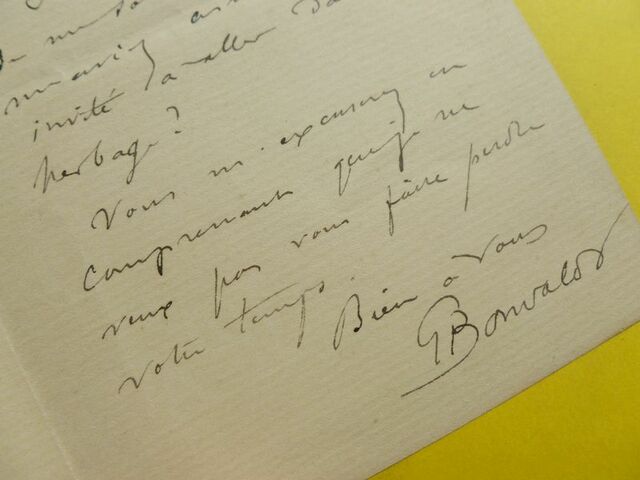 m'aviez
invité à aller
herbage?
Vous m'excuserez en
comprenant que je ne
veux pas vous faire perdre
votre temps.
Bien à vous
GBonvalot